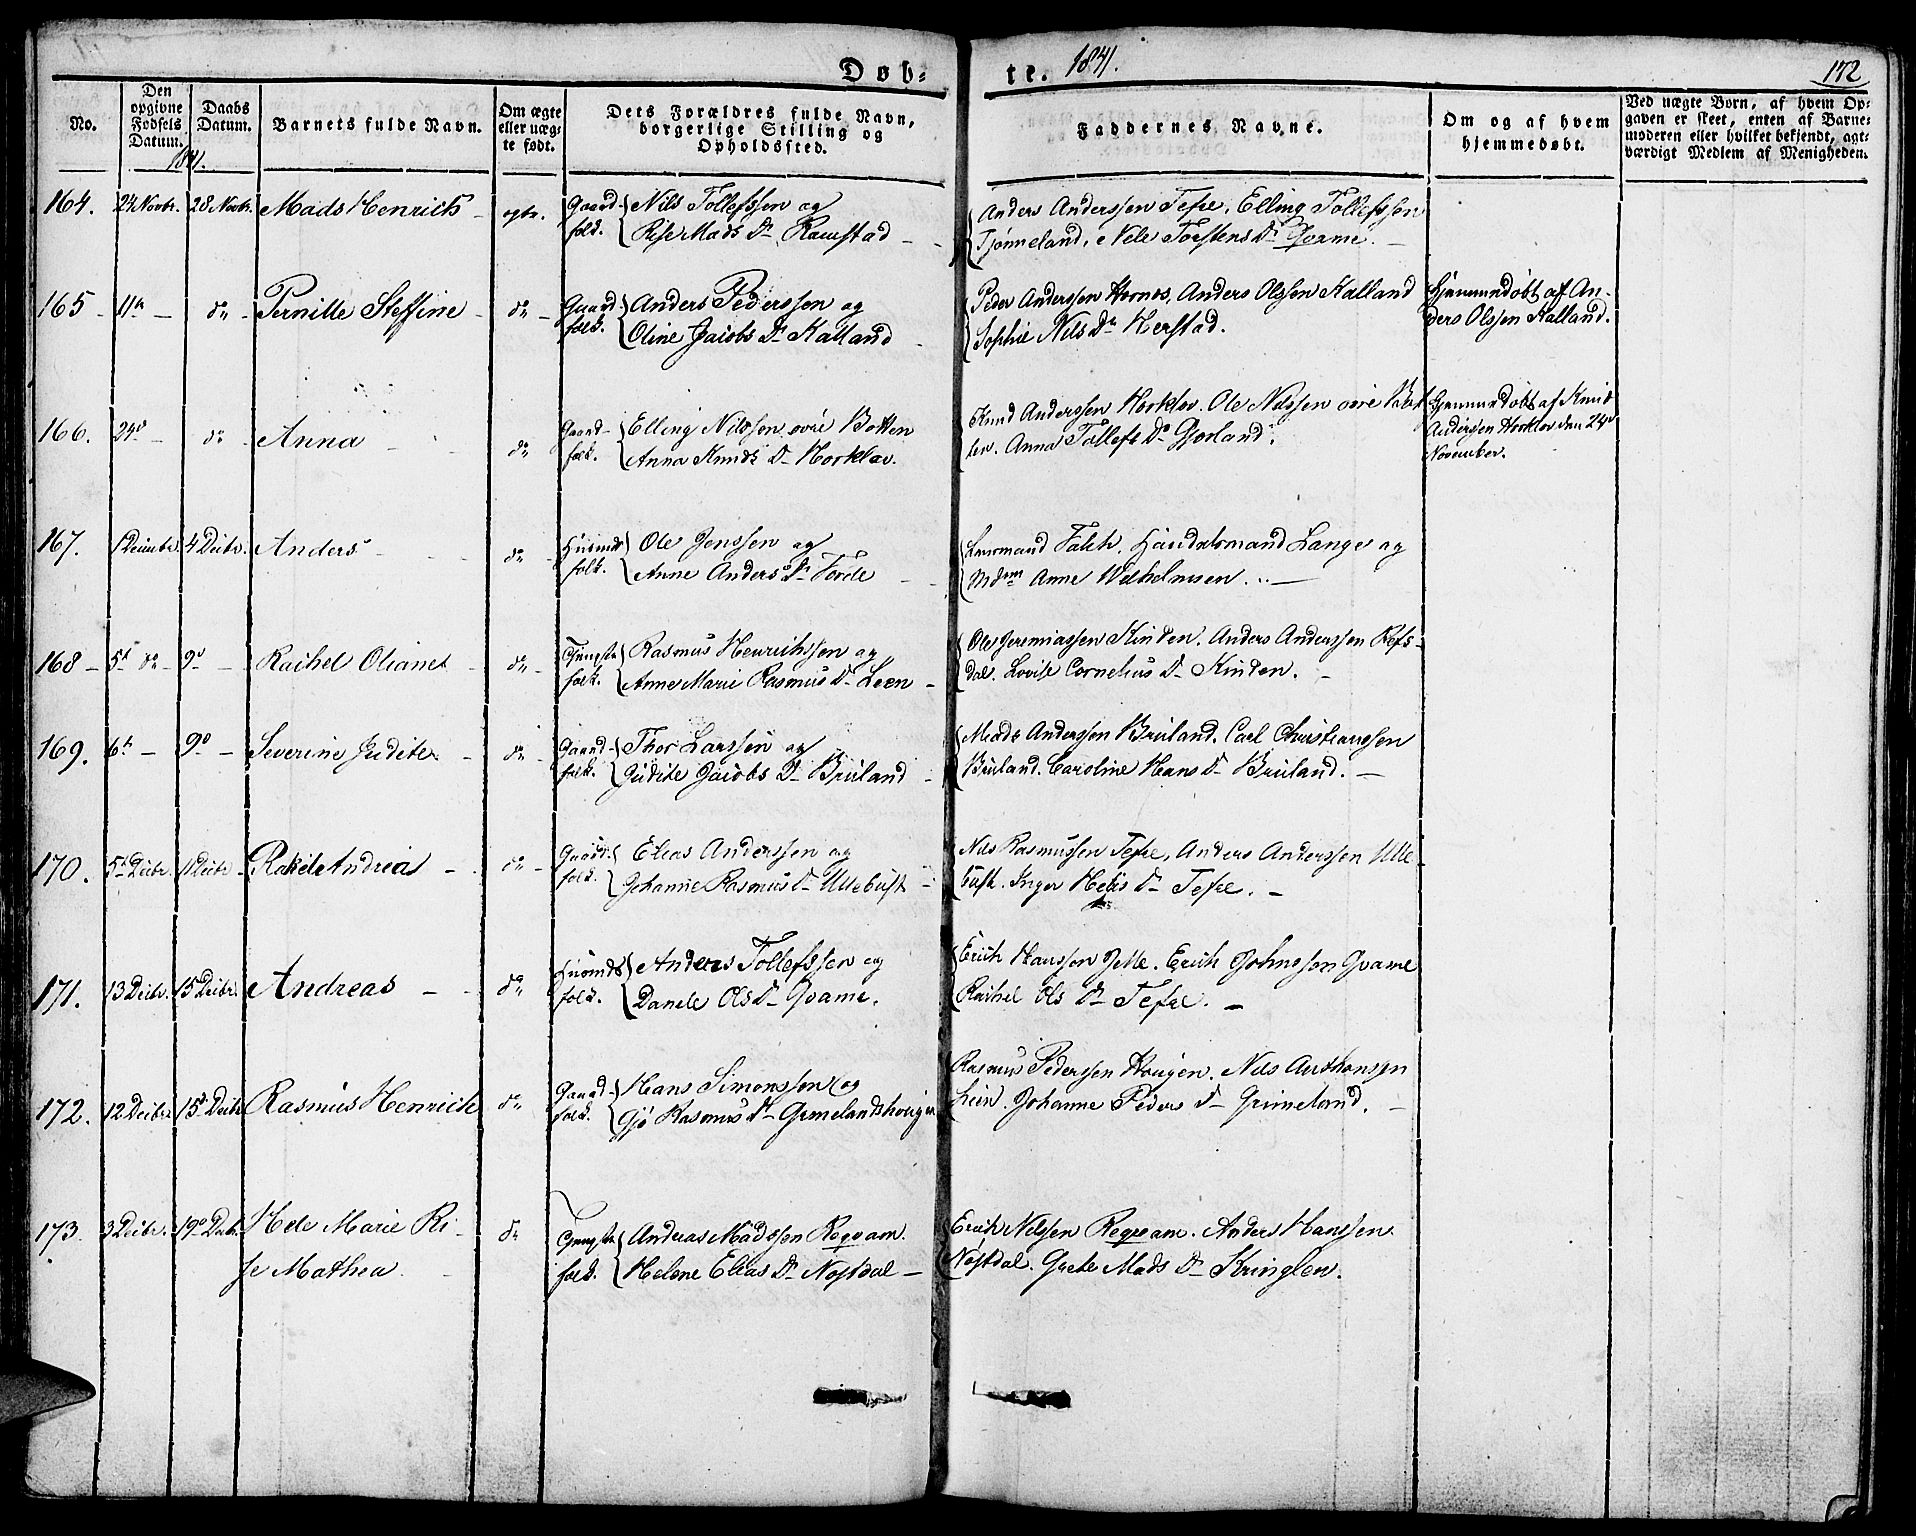 Døb-
te. 1841.
172
No.
Den opgivne Fødsels Datum.
Daabs Datum.
Barnets fulde Navn.
Om ægte eller uæg-te født.
Dets Forældres fulde Navn, borgerlige Stilling og Opholdssted.
Faddernes Navne.
Om og af hvem hjemmedøbt.
Ved uægte Børn, af hvem Op-gaven er skeet, enten af Barne-moderen eller hvilket bekjendt, agt-værdigt Medlem af Menigheden.
1841.
164. 24 Novbr. 28 Novbr. Mads Henrich - Gaard- Nils Tollefssen og
folk. Mads Dr. Ramstad
Anders Anderssen Tefre, Elling Tollefssen
Tjønneland, Nele Torstens Dr Qvame.
165 - 11te - do - Pernille Steffine - do - Gaard- Anders Pederssen og
folk. Oline Jacobs Dr Kalland
Peder Anderssen Hornes, Anders Olssen Kalland
Sophie Nils Dr Herstad.
Hjemmedøbt af An-
ders Olssen Kalland.
166. 24de - do - Anna - do Gaard- Elling Nilssen øvre Botten
folk. Anna Knuds Dr Horklev.
Knud Anderssen Horklev. Ole Nilssen øvre Bot-
ten. Anna Tollefs Dr
Hjemmedøbt af Knud
Anderssen Horklev den 24de
November.
167. 1 4 Decbr. Anders - do - Huusmds Ole Jenssen og
folk. Anne Anders Dr Førde
Lensmand Falch, Handelsmand Lange og
Anne
168 - 5te do - 9de - Rachel Olianes - do - Rasmus Henrichssen og
folk. Anne Marie Rasmus Dr Leen -
Ole Jeremiassen Kinden. Anders Anderssen Refs-
dal. Lovise Cornelius Dr Kinden.
169. 6te - 9de - Severine Judite - do - Gaard- Thor Larssen og
folk. Judite Jacobs Dr Bruland
Mads Anderssen Bruland. Carl Christianssen
Bruland. Caroline Hans Dr Bruland. -
170. 5te Decbr. 11 Decbr. Rakel Andrea - do - Gaard- Elias Anderssen og
folk. Johanne Rasmus Dr Ullebust
Nils Rasmussen Tefre, Anders Anderssen Ulle-
bust. Inger Dr Tefre. -
171. 13 Decbr. 15 Decbr. Andreas - - do Huusmds Anders Tollefssen og
folk. Danele Ols Dr Qvame.
Erich Hanssen Erich Johnssen Qvame
Rachel Ols Dr Tefre. -
172. 12 Decbr. 15de Decbr Rasmus Henrich do Gaard- Hans Simonssen og
folk. Rasmus Dr Grimelandshougen
Rasmus Pederssen Hougen. Nils Anthonssen
Lien. Johanne Peders Dr Grimeland.
173. 3 Decbr. 19de Decbr. Marie Ri- do Andreas Madssen Reqvam.
se Mathea. folk. Helene Elias Dr Nøstdal -
Erich Nilssen Reqvam. Anders Hanssen
Nøstdal. Grete Mads Dr Kringlen.